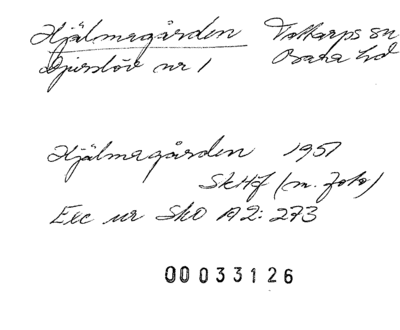 Hjälmagården Tottarps sn
Djurslöv nr 1 Bara hd
Hjälmagården 1951
SkHf (m. foto)
Exc ur SkO A2: 273
00033126